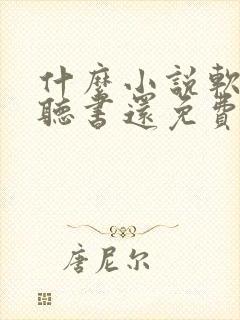 什麼小說軟
聽書還免費
唐尼尔